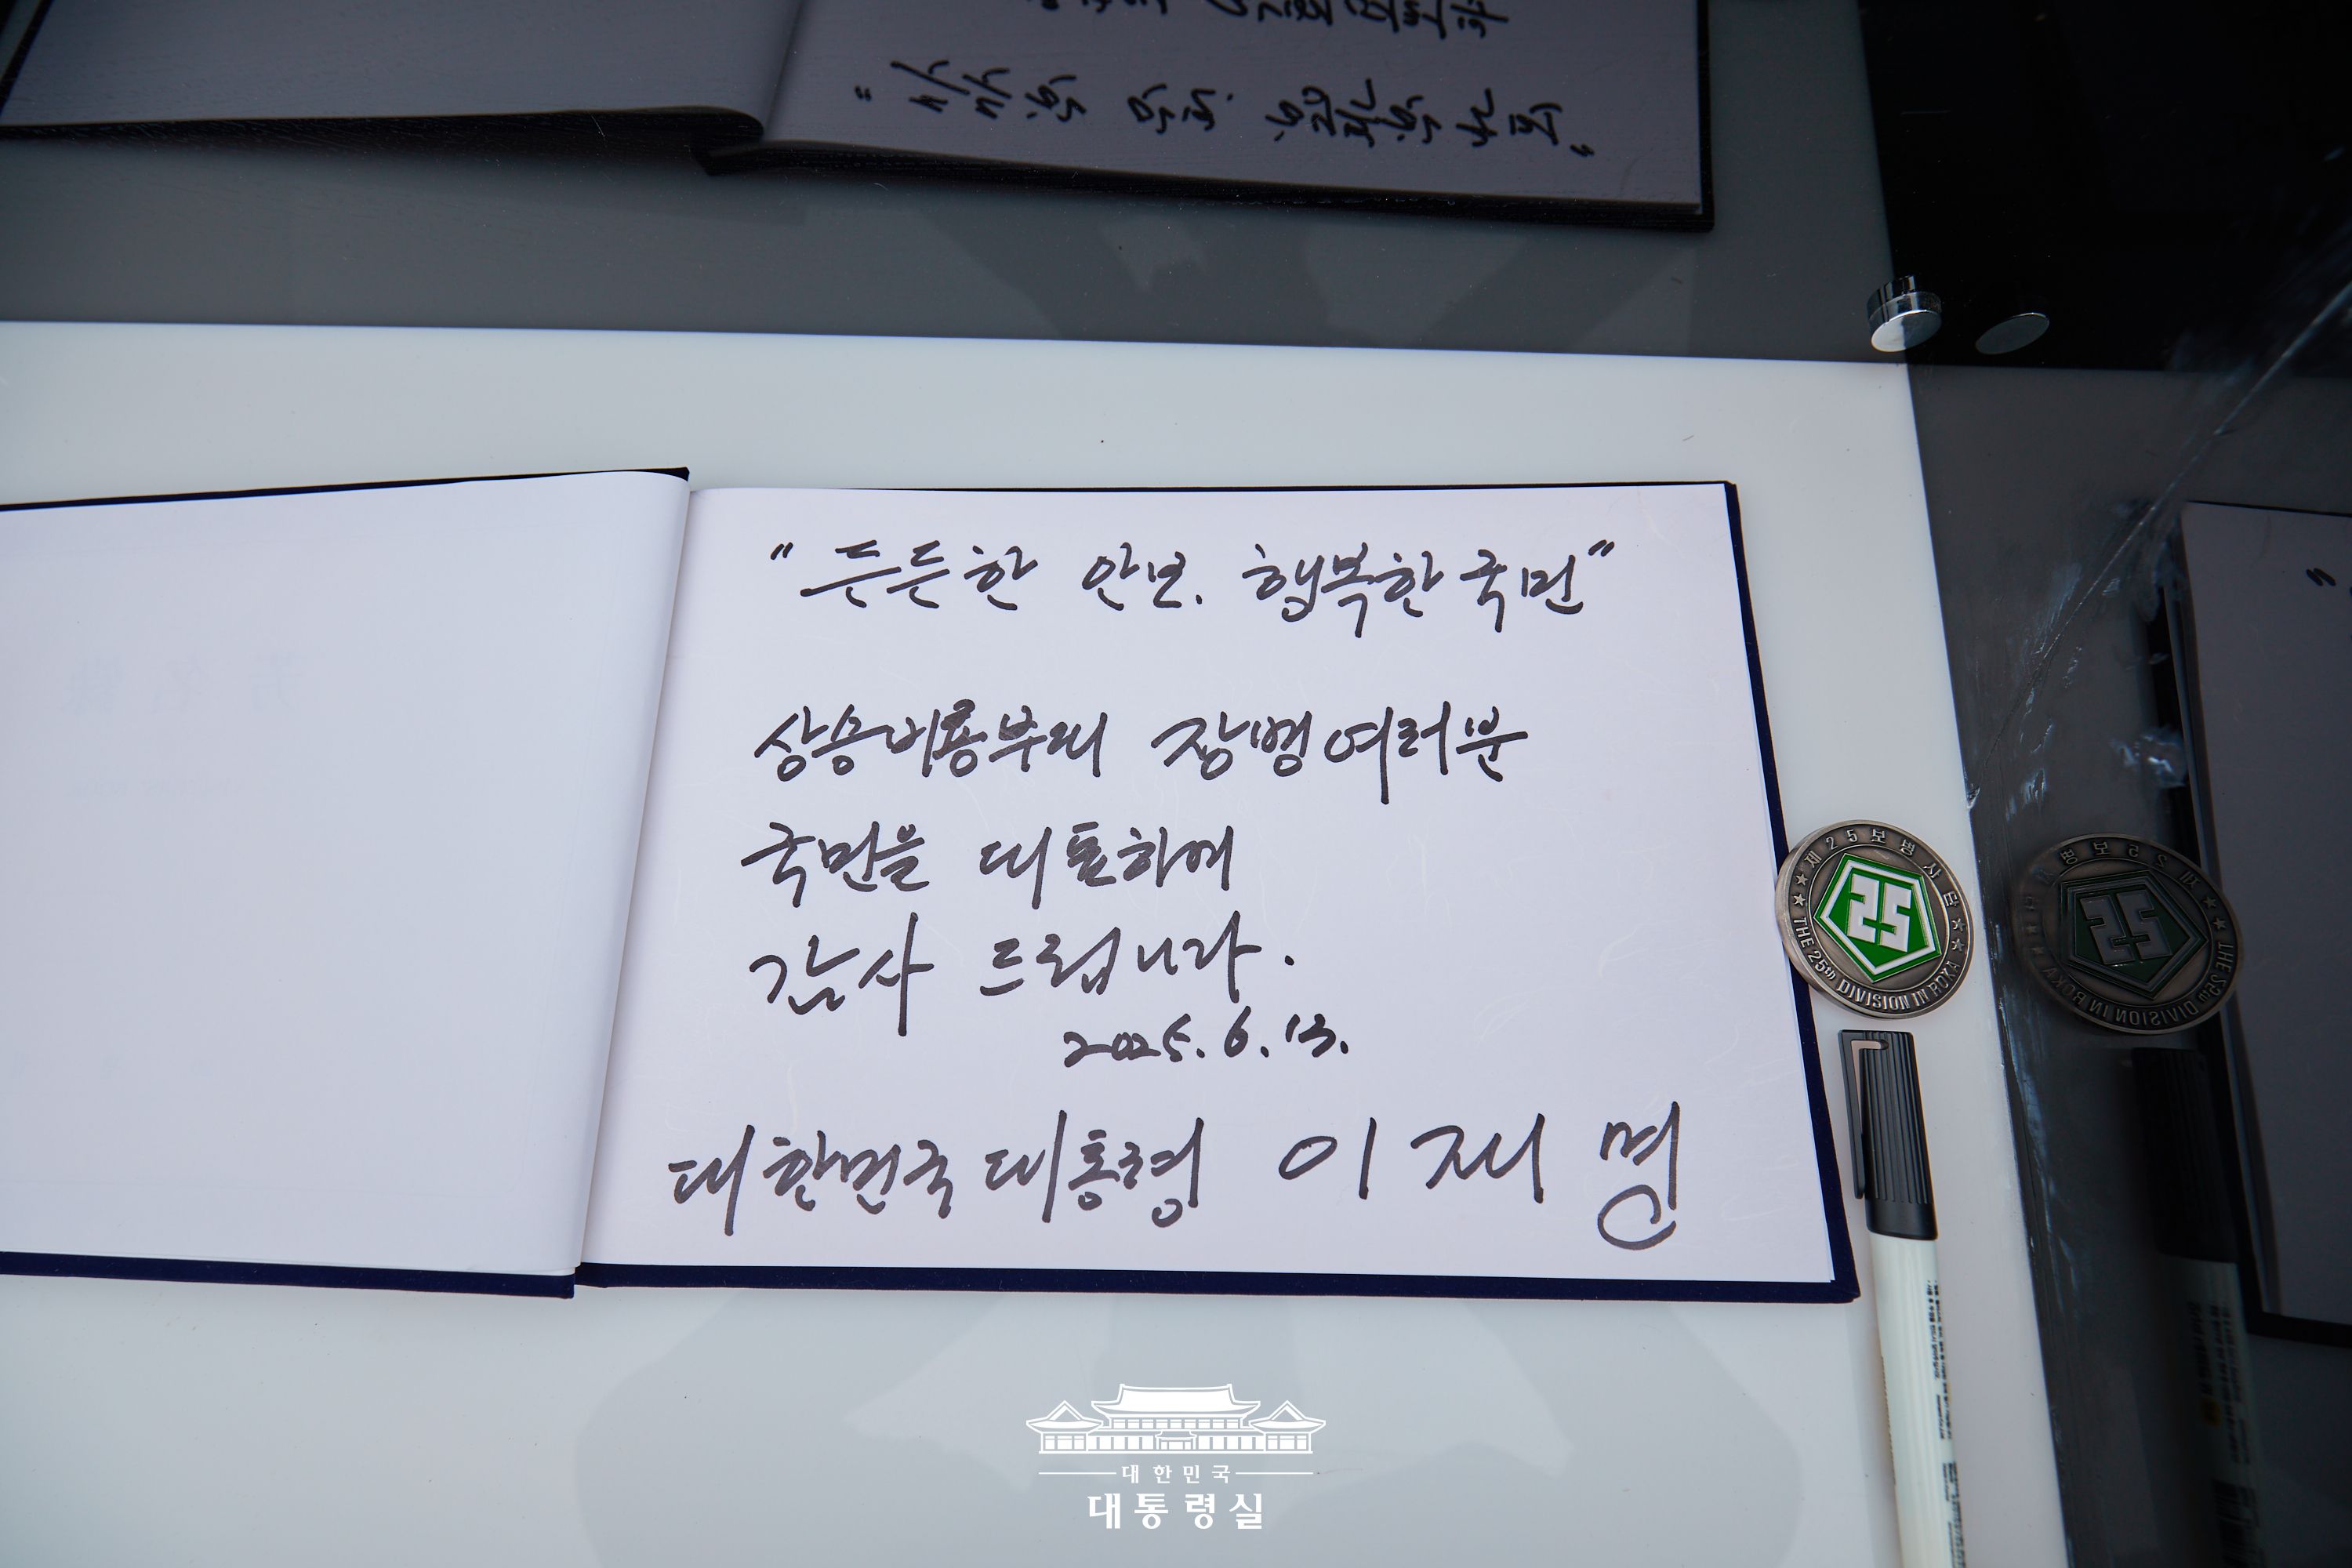 "든든한 안보. 행복한 국민"
상승비룡부대 장병여러분
국민을 대표하여
감사 드립니다.
2025. 6. 13.
대한민국 대통령 이재명
제25보병사단
THE 25th DIVISION IN ROKA
대한민국
대통령실